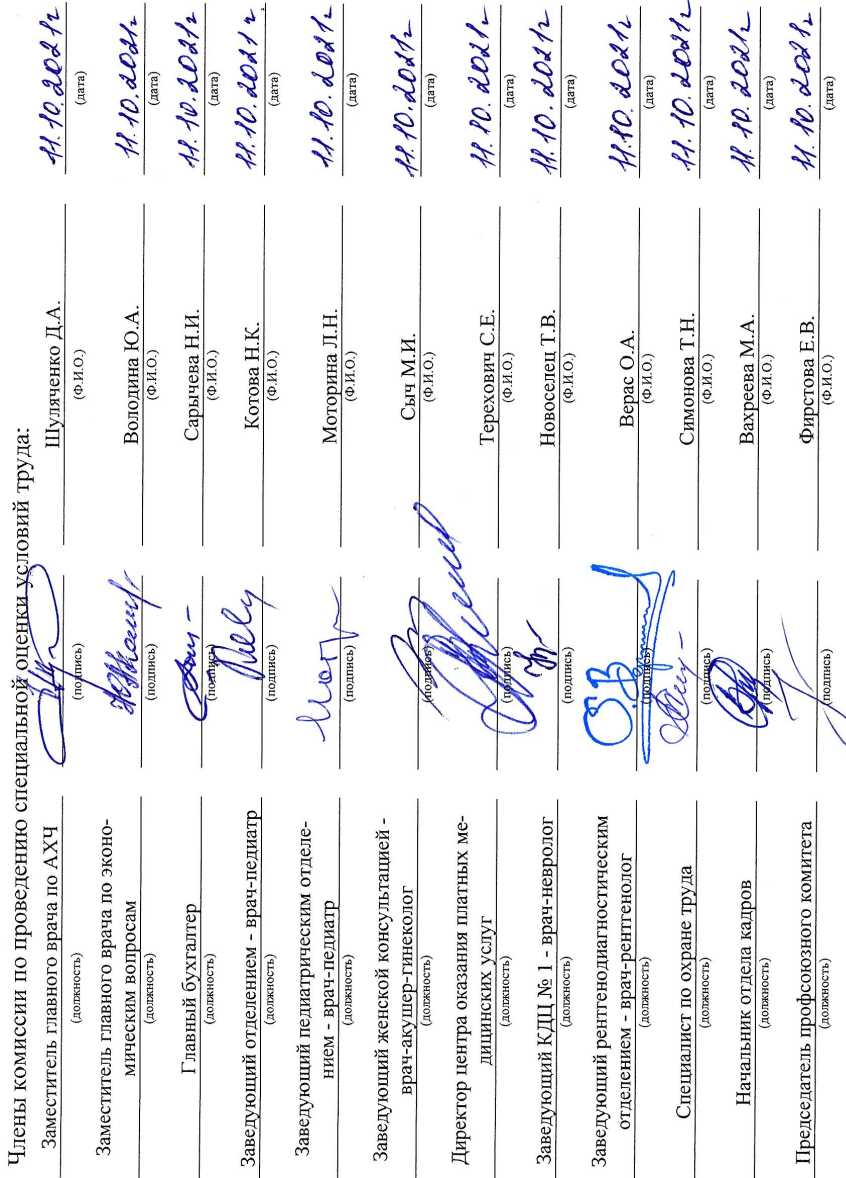 Члены комиссии по проведению специальной оценки условий труда:
Заместитель главного врача по АХЧ Шуляченко Д.А. 11.10.2021г
(должность) (подпись) (Ф.И.О.) (дата)
Заместитель главного врача по эконо-
мическим вопросам Володина Ю.А. 11.10.2021г
(должность) (подпись) (Ф.И.О.) (дата)
Главный бухгалтер Сарычева Н.И. 11.10.2021г
(должность) (подпись) (Ф.И.О.) (дата)
Заведующий отделением - врач-педиатр Котова Н.К. 11.10.2021г
(должность) (подпись) (Ф.И.О.) (дата)
Заведующий педиатрическим отделе-
нием - врач-педиатр Моторина Л.Н. 11.10.2021г
(должность) (подпись) (Ф.И.О.) (дата)
Заведующий женской консультацией -
врач-акушер-гинеколог Сыч М.И. 11.10.2021г
(должность) (подпись) (Ф.И.О.) (дата)
Директор центра оказания платных ме-
дицинских услуг Терехович С.Е. 11.10.2021г
(должность) (подпись) (Ф.И.О.) (дата)
Заведующий КДЦ № 1 - врач-невролог Новоселец Т.В. 11.10.2021г
(должность) (подпись) (Ф.И.О.) (дата)
Заведующий рентгенодиагностическим
отделением - врач-рентгенолог Верас О.А. 11.10.2021г
(должность) (подпись) (Ф.И.О.) (дата)
Специалист по охране труда Симонова Т.Н. 11.10.2021г
(должность) (Ф.И.О.) (дата)
Начальник отдела кадров Вахреева М.А. 11.10.2021г
(должность) (подпись) (Ф.И.О.) (дата)
Председатель профсоюзного комитета Фирстова Е.В. 11.10.2021г
(должность) (подпись) (Ф.И.О.) (дата)